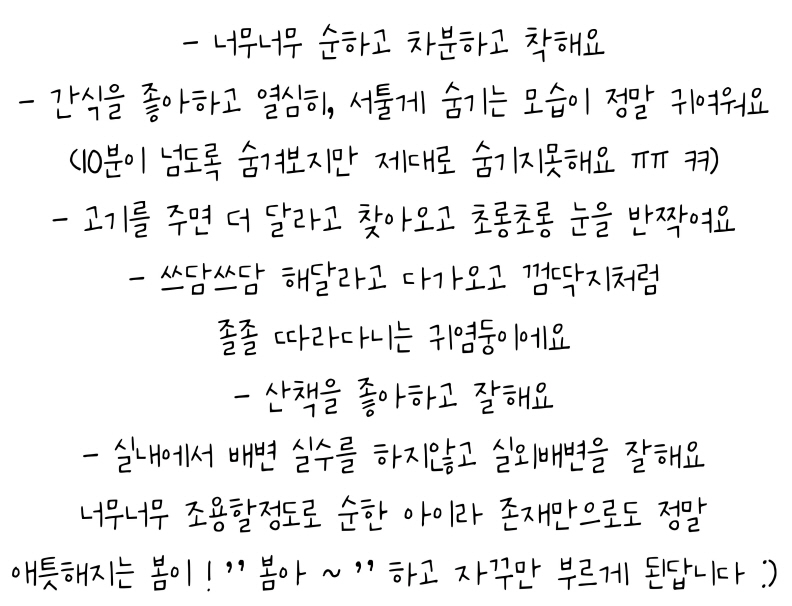 - 너무너무 순하고 차분하고 착해요
- 간식을 좋아하고 열심히, 서툴게 숨기는 모습이 정말 귀여워요
(10분이 넘도록 숨겨보지만 제대로 숨기지못해요 ㅠㅠ ㅋㅋ)
- 고기를 주면 더 달라고 찾아오고 초롱초롱 눈을 반짝여요
- 쓰담쓰담 해달라고 다가오고 껌딱지처럼
졸졸 따라다니는 귀염둥이에요
- 산책을 좋아하고 잘해요
- 실내에서 배변 실수를 하지않고 실외배변을 잘해요
너무너무 조용할정도로 순한 아이라 존재만으로도 정말
애틋해지는 봄이 ! ’’ 봄아 ~ ’’ 하고 자꾸만 부르게 된답니다 :)